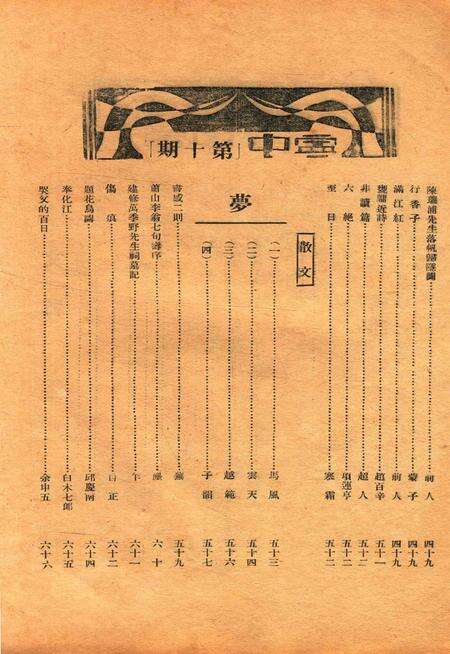 雪中「第十期」
陳瑞浦先生落帆歸隱圖 前人 四十九
行香子 蒙子 四十九
滿江紅 前人 四十九
近詩 趙百辛 五十一
非讀篇 超人 五十二
六絕 項蓮亭 五十二
至日 寒霜 五十二
散文
夢
(一) 馬風 五十三
(二) 雲天 五十四
(三) 越範 五十六
(四) 子韻 五十七
書感二則 五十九
蕭山李翁七旬壽序 六十
建修萬季野先生祠墓記 六十一
傷 正 六十二
題花鳥圖 邱慶南 六十四
奉化江 白木七郎 六十五
哭父的百日 余申五 六十六